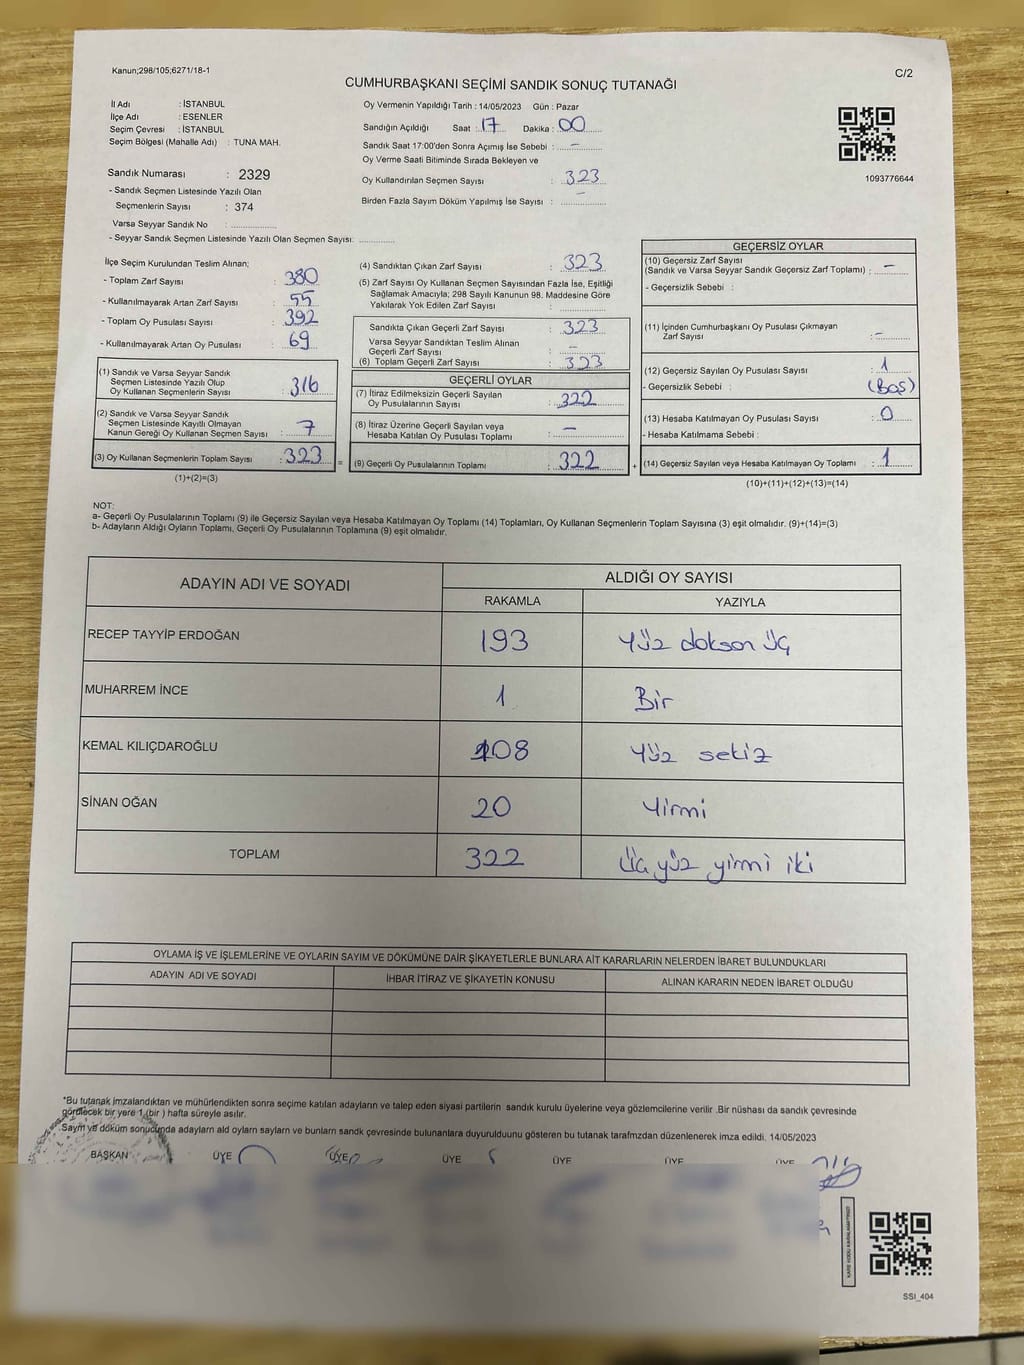 Kanun;298/105;6271/18-1
C/2
CUMHURBAŞKANI SEÇİMİ SANDIK SONUÇ TUTANAĞI
İl Adı : İSTANBUL
İlçe Adı : ESENLER
Seçim Çevresi : İSTANBUL
Seçim Bölgesi (Mahalle Adı) : TUNA MAH.
Sandık Numarası : 2329
- Sandık Seçmen Listesinde Yazılı Olan
Seçmenlerin Sayısı : 374
Varsa Seyyar Sandık No : ..................
- Seyyar Sandık Seçmen Listesinde Yazılı Olan Seçmen Sayısı: .............
Oy Vermenin Yapıldığı Tarih : 14/05/2023 Gün : Pazar
Sandığın Açıldığı Saat : 17 Dakika : 00
Sandık Saat 17:00'den Sonra Açımış İse Sebebi : -
Oy Verme Saati Bitiminde Sırada Bekleyen ve
Oy Kullandırılan Seçmen Sayısı : 323
Birden Fazla Sayım Döküm Yapılmış İse Sayısı : -
1093776644
İlçe Seçim Kurulundan Teslim Alınan;
- Toplam Zarf Sayısı : 380
- Kullanılmayarak Artan Zarf Sayısı : 55
- Toplam Oy Pusulası Sayısı : 392
- Kullanılmayarak Artan Oy Pusulası : 69
(1) Sandık ve Varsa Seyyar Sandık
Seçmen Listesinde Yazılı Olup
Oy Kullanan Seçmenlerin Sayısı : 316
(2) Sandık ve Varsa Seyyar Sandık
Seçmen Listesinde Kayıtlı Olmayan
Kanun Gereği Oy Kullanan Seçmen Sayısı : 7
(3) Oy Kullanan Seçmenlerin Toplam Sayısı : 323 =
(1)+(2)=(3)
(4) Sandıktan Çıkan Zarf Sayısı : 323
(5) Zarf Sayısı Oy Kullanan Seçmen Sayısından Fazla İse, Eşitliği
Sağlamak Amacıyla; 298 Sayılı Kanunun 98. Maddesine Göre
Yakılarak Yok Edilen Zarf Sayısı :
Sandıkta Çıkan Geçerli Zarf Sayısı : 323
Varsa Seyyar Sandıktan Teslim Alınan
Geçerli Zarf Sayısı : -
(6) Toplam Geçerli Zarf Sayısı : 323
GEÇERLİ OYLAR
(7) İtiraz Edilmeksizin Geçerli Sayılan
Oy Pusulalarının Sayısı : 322
(8) İtiraz Üzerine Geçerli Sayılan veya
Hesaba Katılan Oy Pusulası Toplamı : -
(9) Geçerli Oy Pusulalarının Toplamı : 322 +
GEÇERSİZ OYLAR
(10) Geçersiz Zarf Sayısı
(Sandık ve Varsa Seyyar Sandık Geçersiz Zarf Toplamı) : -
- Geçersizlik Sebebi :
(11) İçinden Cumhurbaşkanı Oy Pusulası Çıkmayan
Zarf Sayısı : -
(12) Geçersiz Sayılan Oy Pusulası Sayısı : 1
- Geçersizlik Sebebi : (Boş)
(13) Hesaba Katılmayan Oy Pusulası Sayısı : 0
- Hesaba Katılmama Sebebi :
(14) Geçersiz Sayılan veya Hesaba Katılmayan Oy Toplamı : 1
(10)+(11)+(12)+(13)=(14)
NOT:
a- Geçerli Oy Pusulalarının Toplamı (9) ile Geçersiz Sayılan veya Hesaba Katılmayan Oy Toplamı (14) Toplamları, Oy Kullanan Seçmenlerin Toplam Sayısına (3) eşit olmalıdır. (9)+(14)=(3)
b- Adayların Aldığı Oyların Toplamı, Geçerli Oy Pusulalarının Toplamına (9) eşit olmalıdır.
ADAYIN ADI VE SOYADI ALDIĞI OY SAYISI
RAKAMLA YAZIYLA
RECEP TAYYİP ERDOĞAN 193 Yüz doksan üç
MUHARREM İNCE 1 Bir
KEMAL KILIÇDAROĞLU 108 Yüz sekiz
SİNAN OĞAN 20 Yirmi
TOPLAM 322 Üç yüz yirmi iki
OYLAMA İŞ VE İŞLEMLERİNE VE OYLARIN SAYIM VE DÖKÜMÜNE DAİR ŞİKAYETLERLE BUNLARA AİT KARARLARIN NELERDEN İBARET BULUNDUKLARI
ADAYIN ADI VE SOYADI İHBAR İTİRAZ VE ŞİKAYETİN KONUSU ALINAN KARARIN NEDEN İBARET OLDUĞU
*Bu tutanak imzalandıktan ve mühürlendikten sonra seçime katılan adayların ve talep eden siyasi partilerin sandık kurulu üyelerine veya gözlemcilerine verilir .Bir nüshası da sandık çevresinde
görülecek bir yere 1 (bir ) hafta süreyle asılır.
Sayım ve döküm sonucunda adayların ald oyların sayların ve bunların sandk çevresinde bulunanlara duyurulduunu gösteren bu tutanak tarafmzdan düzenlenerek imza edildi. 14/05/2023
BAŞKAN ÜYE ÜYE ÜYE ÜYE ÜYE ÜYE
SSI_404